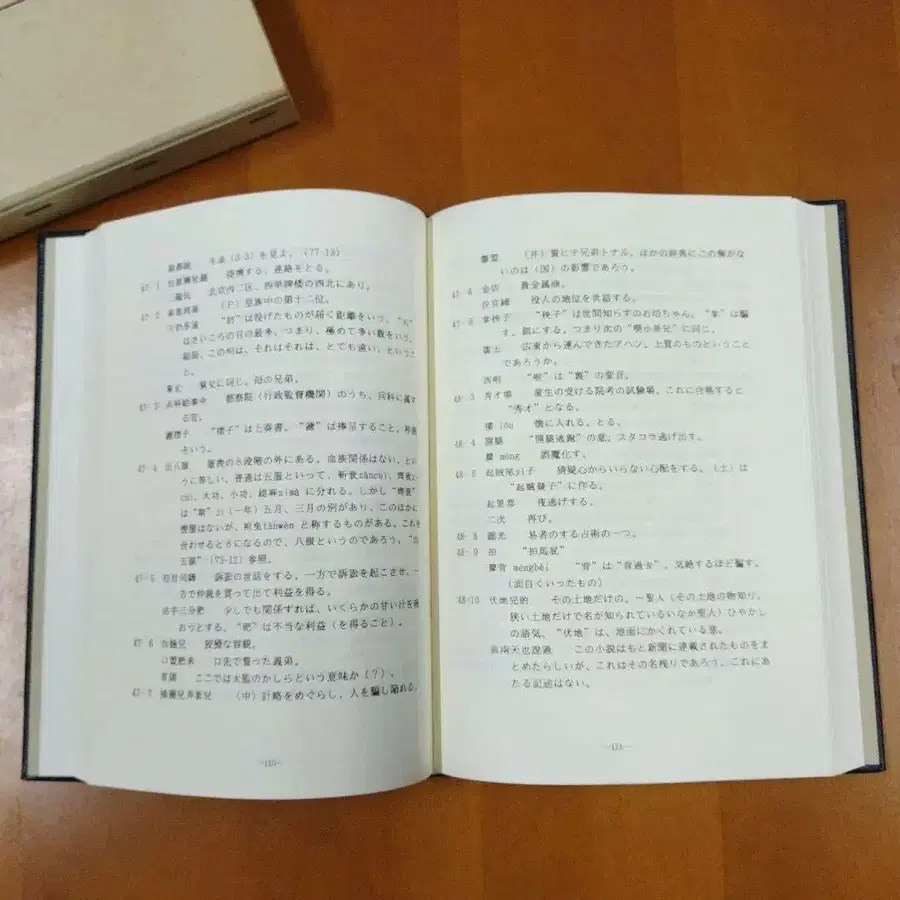 を見よ。(77-13)
47- 1 連携する、連絡をとる。
北京内二区、西単牌楼の西北にあり。
47- 2 (P) 皇族中の第十二位。
は投げたものが届く距離をいう。
はさいころの目の最多、つまり、極めて多い数をいう。
結局、この句は、それはそれは、とても遠い、というこ
と。
舅父に同じ。母の兄弟。
47- 3 兵科給事中 都察院（行政監督機関）のうち、兵科に属す
る官。
は上奏書。は捧呈すること。
をいう。
47- 4 出八服 服喪の８段階の外にある。血族関係はない、とい
うに等しい。普通は五服といって、斬衰zǎncuī、齊衰zī
cuī、大功、小功、緦麻sīmá に分れる。しかし“齊衰”
は“期”jī（一年）五月、三月の別があり、このほかに
喪服はないが、袒免tǎnwèn と称するものがある。これを
合わせると８になるので、八服というのであろう。“出
五服”(73-12) 参照。
47- 5 訴訟の世話をする。一方で訴訟を起こさせ、一
方で仲裁を買って出て利益を得る。
沾手三分肥 少しでも関係すれば、いくらかの甘い汁を吸
おうとする。“肥”は不当な利益（を得ること）。
47- 6 狡猾な容貌。
口盟把弟 口先で誓った義弟。
ここでは太監のかしらという意味か（？）。
47- 7 （中）計略をめぐらし、人を騙し陥れる。
—110—
（井）貴ヒテ兄弟トナル。ほかの辞典にこの解がな
いのは（国）の影響であろう。
47- 8 金店 貴金属商。
役人の地位を世話する。
47- 9 拿秧子 “秧子”は世間知らずのお坊ちゃん。“拿”は騙
す、餌にする。つまり次の に同じ。
廣土 広東から運んできたアヘン。上質のものということ
であろうか。
48- 3 秀才場 童生の受ける院考の試験場。これに合格すると
“秀才”となる。
摟 lōu 懐に入れる。とる。
48- 4 開腿 “開腿逃跑”の意。スタコラ逃げ出す。
蒙 mēng 誤魔化す。
48- 5 起賊尾zi子 猜疑心からいらない心配をする。（土）は
に作る。
起黑票 夜逃げする。
二次 再び。
48- 8 圓光 易者のする占術の一つ。
48- 9 拍 “拍馬屁”
蒙背 mēngbèi “背”は“背過去”。気絶するほど騙す。
（面白くいったもの）
48-10 伏地兒的 その土地だけの。～聖人（その土地の物知り。
狭い土地だけで名が知られているいなか聖人）ひやかし
の語気。“伏地”は、地面にかくれている意。
この小説はもと新聞に連載されたものをま
とめたらしいが、これはその名残りであろう。これにあ
たる記述はない。
—111—